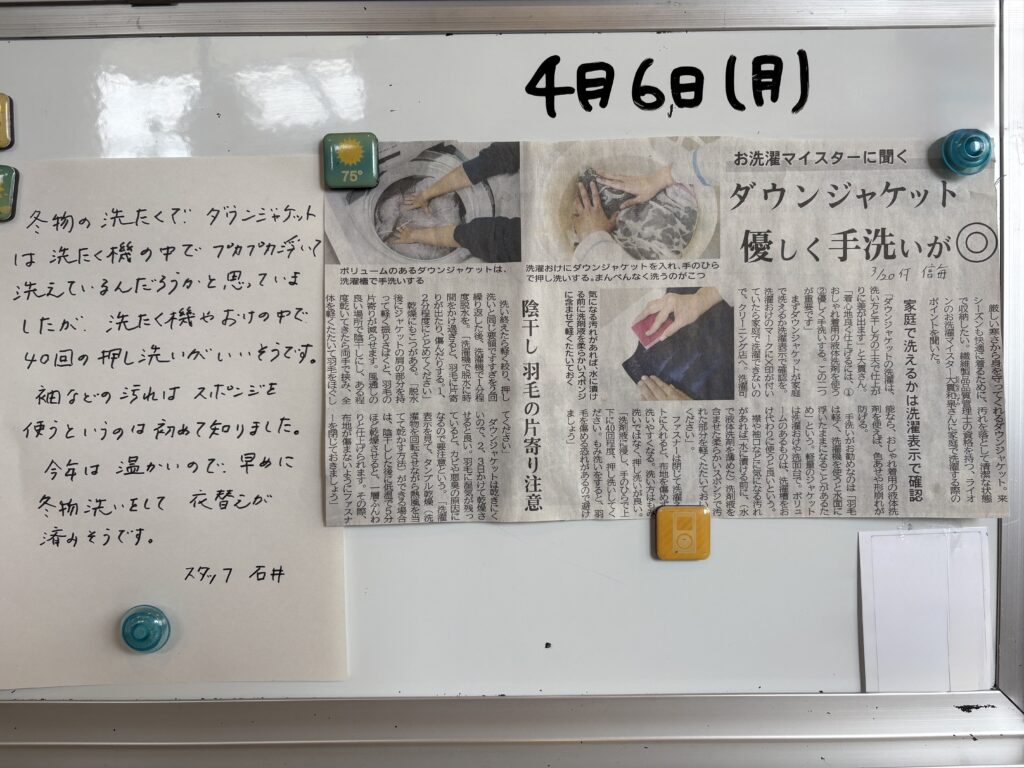 4月6日(月)
冬物の洗たくで ダウンジャケット
は 洗たく機の中で プカプカ浮いて
洗えているんだろうかと思っていま
したが、洗たく機やおけの中で
40回の押し洗いがいいそうです。
袖などの汚れは スポンジを
使うというのは初めて知りました。
今年は 温かいので、早めに
冬物洗いをして 衣替えが
済みそうです。
スタッフ 石井
75°
お洗濯マイスターに聞く
ダウンジャケット
優しく手洗いが◎
3/20付 信毎
厳しい寒さから身を守ってくれるダウンジャケット。来
シーズンも快適に着るために、汚れを落として清潔な状態
で収納したい。繊維製品品質管理士の資格を持つ、ライオ
ンのお洗濯マイスター大貫和泉さんに家庭で洗濯する際の
ポイントを聞いた。
家庭で洗えるかは洗濯表示で確認
「ダウンジャケットの洗濯は、
洗い方と干し方の工夫で仕上が
りに差が出ます」と大貫さん。
「着心地良く仕上げるには、①
おしゃれ着用の液体洗剤を使う
②優しく手洗いする。この二つ
が重要です」
まずダウンジャケットが家庭
で洗えるか洗濯表示で確認を。
洗濯おけのマークに×印が付い
ていたら家庭で洗濯できないの
で、クリーニング店へ。洗濯可
能なら、おしゃれ着用の液体洗
剤を使えば、色あせや形崩れが
防げる。
手洗いがお勧めなのは「羽毛
は軽く、洗濯機を使うと水面に
浮いたままになることがあるた
め」という。軽量のジャケット
は洗濯おけや洗面台で、ボリュ
ームのあるものは、洗濯槽をお
け代わりに使うと良いという。
襟や袖口などに気になる汚れ
があれば「水に漬ける前に、(水
で液体洗剤を薄めた)洗剤液を
含ませた柔らかいスポンジで汚
れた部分を軽くたたいておいて
ください」。
ファスナーは閉じて洗濯ネッ
トに入れると、布地を傷めず
洗いやすくなる。洗い方はもみ
洗いではなく、押し洗いが良い。
「洗剤液に浸し、手のひらで上
下に40回程度、押し洗いしてく
ださい。もみ洗いをすると、羽
毛を傷める恐れがあるので避け
ましょう」
洗濯おけにダウンジャケットを入れ、手のひら
で押し洗いする。まんべんなく洗うのがこつ
ボリュームのあるダウンジャケットは、
洗濯槽で手洗いする
気になる汚れがあれば、水に漬
ける前に洗剤液を柔らかいスポンジ
に含ませて軽くたたいておく
陰干し 羽毛の片寄り注意
洗い終えたら軽く絞り、押し
洗いと同じ要領ですすぎを2回
繰り返した後、洗濯機で1分程
度脱水を。「洗濯機で脱水に時
間をかけ過ぎると、羽毛に片寄
りが出たり、傷んだりする。1、
2分程度にとどめてください」
乾燥にもこつがある。「脱水
後にジャケットの肩の部分を持
って軽く振りさばくと、羽毛の
片寄りが減らせます。風通しの
良い場所で陰干しにし、ある程
度乾いてきたら両手で挟み、全
体を軽くたたいて羽毛をほぐし
てください」
ダウンジャケットは乾きにく
いので、2、3日かけて乾燥さ
せると良い。羽毛に湿気が残っ
ていると、カビや悪臭の原因に
なるので要注意という。「洗濯
表示を見て、タンブル乾燥(洗
濯物を回転させながら熱風を当
てて乾かす方法)ができる場合
は、陰干しした後に低温で5分
ほど乾燥させると、一層ふんわ
りと仕上げられます。その際、
布地が傷まないようにファスナ
ーを閉じておきましょう」